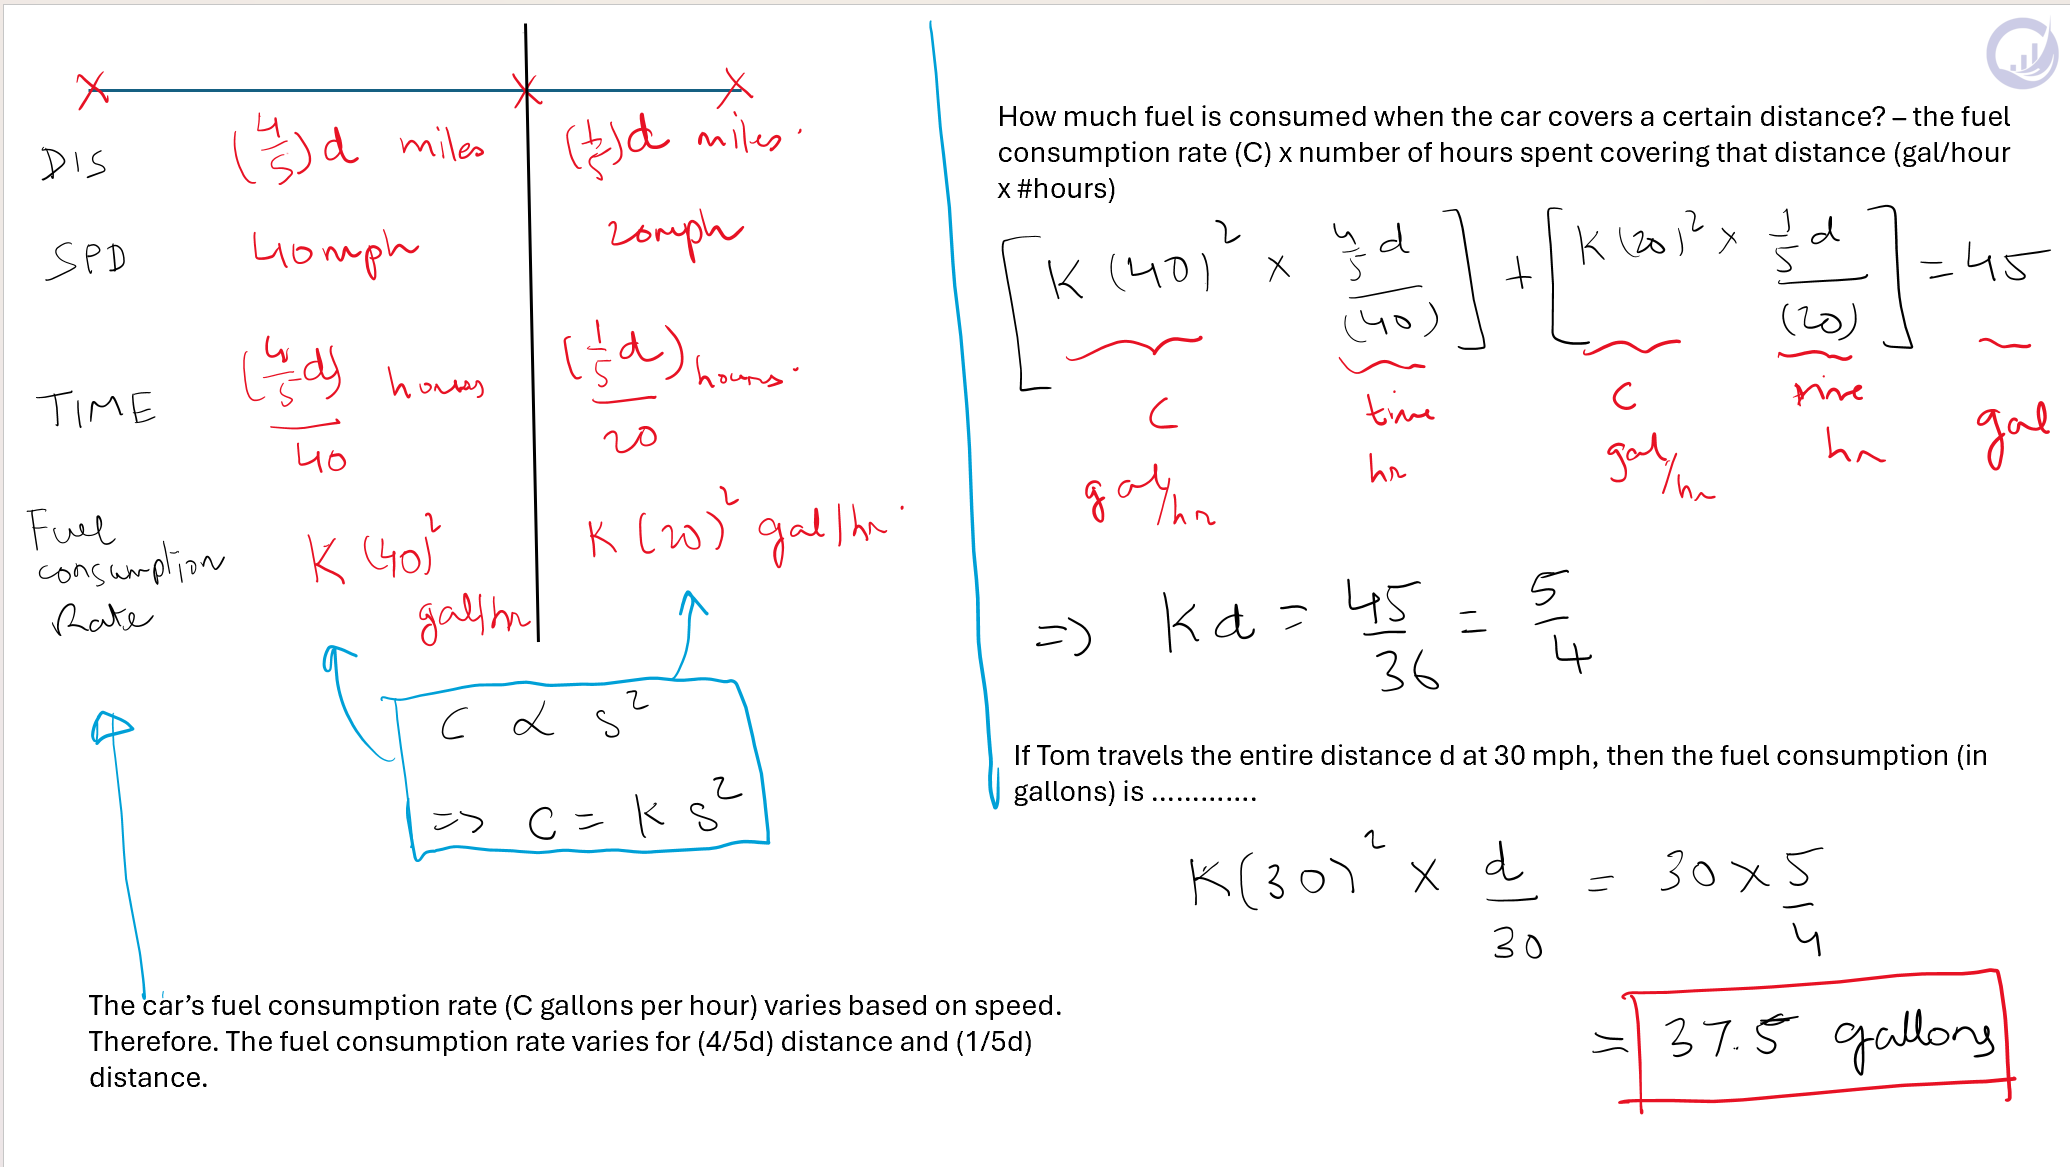 DIS (4/5)d miles (1/5)d miles.
SPD 40mph 20mph
TIME (4/5 d)/40 hours (1/5 d)/20 hours.
Fuel
consumption
Rate
K (40)² gal/hr
K (20)² gal/hr.
C ∝ s²
=> C = K s²
The car’s fuel consumption rate (C gallons per hour) varies based on speed.
Therefore. The fuel consumption rate varies for (4/5d) distance and (1/5d)
distance.
How much fuel is consumed when the car covers a certain distance? – the fuel
consumption rate (C) x number of hours spent covering that distance (gal/hour
x #hours)
[K (40)² x (4/5 d)/(40)] + [K (20)² x (1/5 d)/(20)] = 45
C time C time
gal/hr hr gal/hr hr gal
=> Kd = 45/36 = 5/4
If Tom travels the entire distance d at 30 mph, then the fuel consumption (in
gallons) is .............
K(30)² x d/30 = 30 x 5/4
= 37.5 gallons